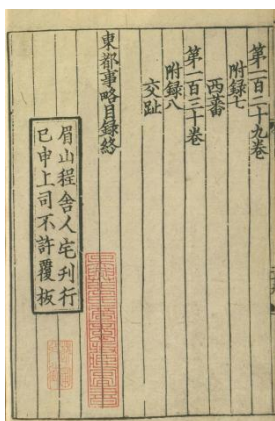 第一百二十九卷
附錄七
西蕃
第一百三十卷
附錄八
交趾
東都事略目錄終
眉山程舍人宅刊行
已申上司不許覆板